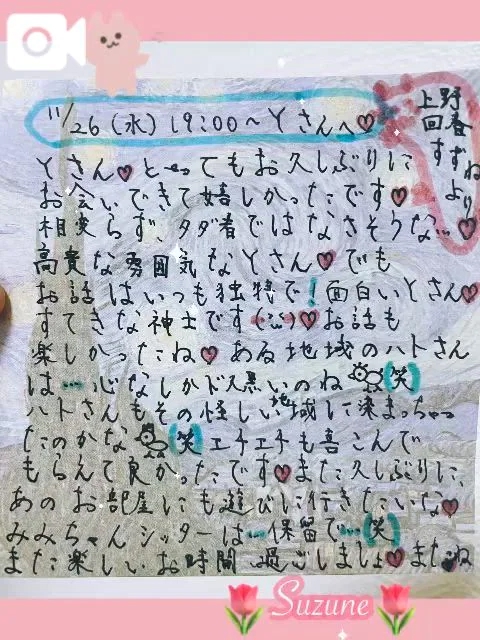 11/26(水)19:00〜Yさんへ♡
上野
回春
すずね
より
Yさん♡と〜ってもお久しぶりに
お会いできて嬉しかったです♡
相変らず、タダ者ではなさそうな…♡
高貴な雰囲気なYさん♡でも
お話はいつも独特で!面白いYさん♡
すてきな神士です♡お話も
楽しかったね♡ある地域のハトさん
は…心なしかドス黒いのね(笑)
ハトさんもその怪しい地域に染まっちゃっ
たのかな(笑)エチエチも喜こんで
もらえて良かったです♡また久しぶりに、
あのお部屋にも遊びに行きたいな♡
みみちゃんシッターは…保留で…(笑)
また楽しいお時間過ごしましょ♡またね
Suzune